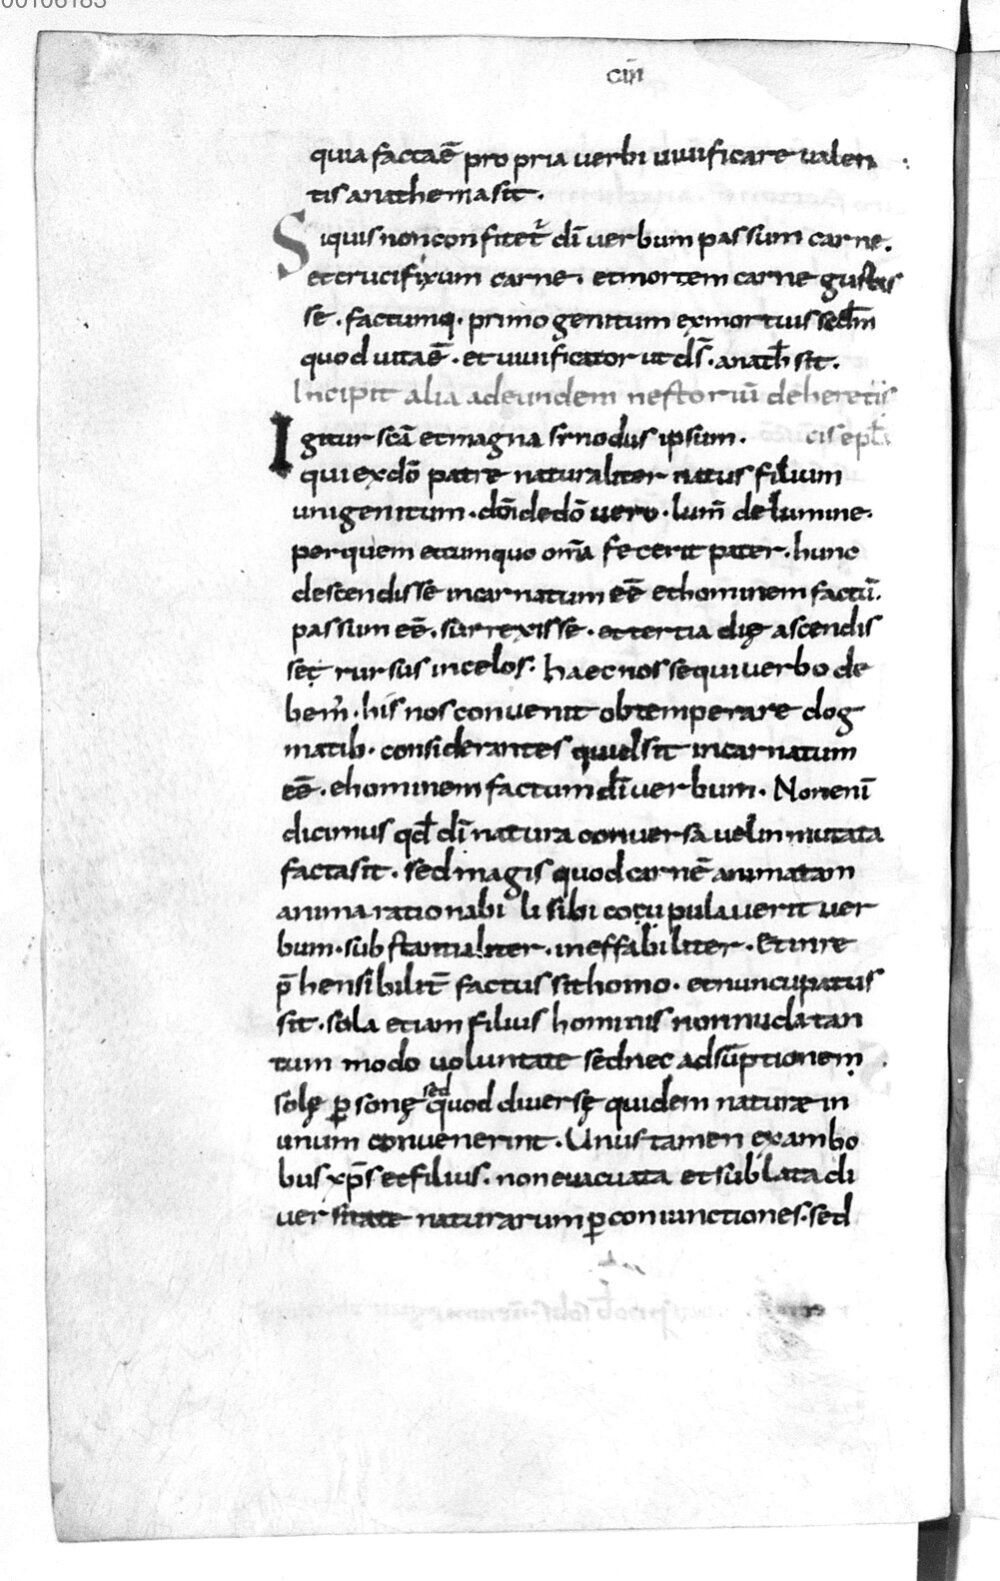 00106183
ciii
quia facta ē propria uerbi uiuificare ualen
tis anathema sit.
Siquis non confitetr̄ dī uerbum passum carne.
et crucifixum carne. et mortem carne gustas
se. factumq. primogenitum ex mortuis secdm̄
quod uita ē. et uiuificator ut ds̄. anath̄ sit.
Incipit alia ad eundem nestoriū de heretiis
cis epl̄a
Igitur scā et magna sinodus ipsum.
qui ex dō patre naturaliter natus filium
unigenitum. dōi de dō uero. lum̄ de lumine.
per quem et cum quo om̄a fecerit pater. hunc
descendisse incarnatum eē et hominem factū.
passum eē. surrexisse. et tertia die ascendis
set rursus in celos. haec nos sequi uerbo de
bem̄. his nos conuenit obtemperare dog
matib. considerantes quid sit incarnatum
eē. ehominem factum dī uerbum. Non enī
dicimus qd̄ dī natura conuersa uel inmutata
facta sit. sed magis quod carnē animatam
anima rationabili sibi copulauerit uer
bum. substantialiter. ineffabiliter. Et inre
p̄hensibilit̄ factus sit homo. et nuncupatus
sit. sola etiam filius hominis non nuda tan
tum modo uoluntate sed nec adsūptionem
solę p̱sonę sed quod diuersę quidem naturæ in
unum conuenerint. Unus tamen ex ambo
bus xp̄s et filius. non euacuata et sublata di
uersitate naturarum p̱ coniunctiones. sed